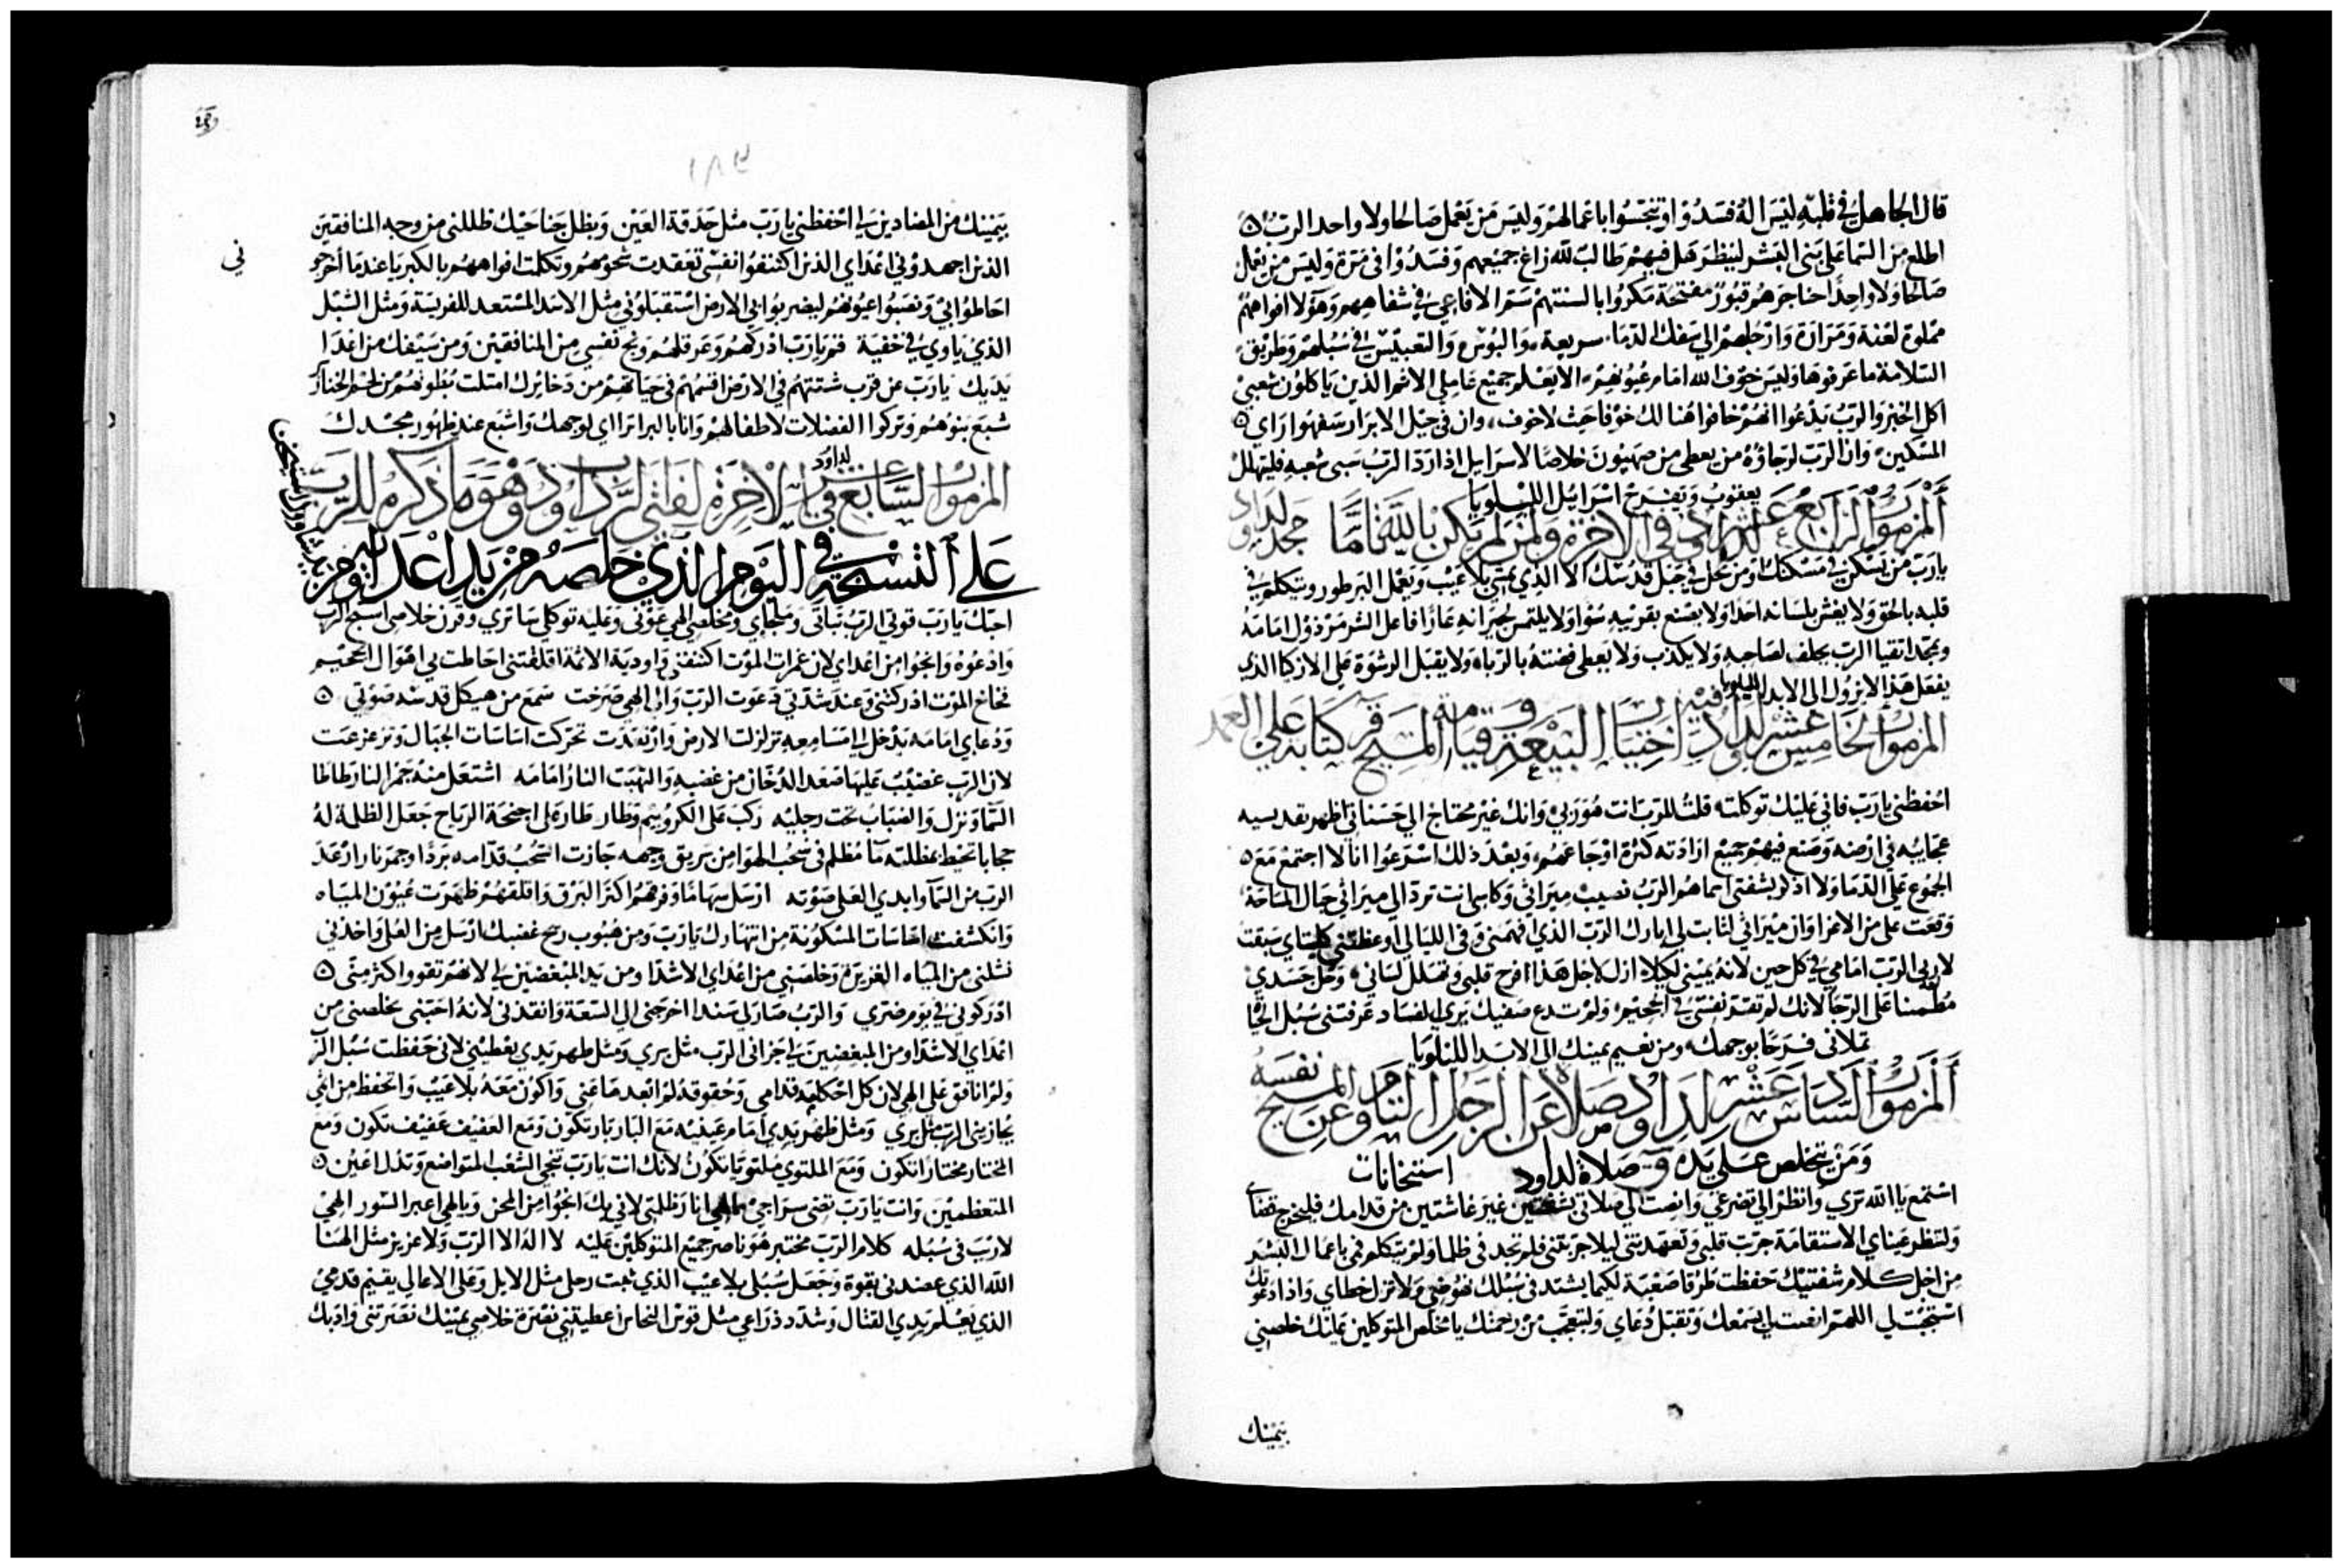 قال الجاهل في قلبه ليس اله فسدوا وتنجسوا باعمالهم وليس من يعمل صالحا ولا واحد الرب
اطلع من السما على بني البشر لينظر هل فيهم طالب لله زاغ جميعهم وفسدوا في مرة وليس من يعمل
صالحا ولا واحدا حناجرهم قبور مفتحة مكروا بالسنتهم سم الافاعي في شفاههم وهولا افواههم
مملوة لعنة ومرارة وارجلهم الي سفك الدما سريعة والبوس والتعبيس في سبلهم وطريق
السلامة ما عرفوها وليس خوف الله امام عيونهم الا يعلم جميع عاملي الاثم الذين ياكلون شعبي
اكل الخبز والرب لم يدعوا انهم خافوا هنالك خوفا حيث لا خوف وان في جيل الابرار سفهوا راي
المسكين وان الرب لرجاؤه من يعطي من صهيون خلاصا لاسرايل اذا رد الرب سبي شعبه فليتهلل
يعقوب ويفرح اسرائيل الليلويا
المزمور الرابع عشر لداود في الاخرة ولمن لم يكن بالليل تاما مجد لداود
يارب من يسكن في مسكنك او من يحل في جبل قدسك الا الذي يمشي بلا عيب ويعمل البر ويتكلم في
قلبه بالحق ولا يغش بلسانه احدا ولا يصنع بقريبه سؤا ولا يلتمس لجيرانه عارا فاعل الشر مرذول امامه
ويمجد اتقيا الرب يحلف لصاحبه ولا يكذب ولا يعطي فضته بالربا ولا يقبل الرشوة علي الازكيا الذي
يفعل هذا لا يزول الي الابد الليلويا
المزمور الخامس عشر لداود فيه اختيار البيعة وقيامة المسيح كتابة علي العمد
احفظني يارب فاني عليك توكلت قلت للرب انت هو ربي وانك غير محتاج الي حسناتي اظهر لقديسيه
عجايبه في ارضه وصنع فيهم جميع ارادته كثرة اوجاعهم وبعد ذلك اسرعوا انا لا اجتمع مع
الجموع علي الدما ولا اذكر بشفتي اسماهم الرب نصيب ميراثي وكاسي انت ترد الي ميراثي حبال المساحة
وقعت علي من الاعزا وان ميراثي لثابت لي ابارك الرب الذي افهمني وفي الليالي اوعظتني كليتاي سبقت
لاري الرب امامي في كل حين لانه يميني لكيلا ازل لاجل هذا فرح قلبي وتهلل لساني وحل جسدي
مطمئنا علي الرجا لانك لم تترك نفسي في الجحيم ولم تدع صفيك يري الفساد عرفتني سبل الحيا
تملاني فرحا بوجهك ومن نعيم يمينك الي الابد الليلويا
المزمور السادس عشر لداود صلاة عن الرجل التام وعن المسيح نفسه
ومن يتخلص علي يده صلاة لداود استخانات
استمع يا الله بري وانظر الي تضرعي وانصت الي صلاتي بشفتين غير غاشتين من قدامك فليخرج قضاي
ولتنظر عيناي الاستقامة جربت قلبي وتعهدتني ليلا جربتني فلم تجد في ظلما ولم يتكلم فمي باعمال البشر
من اجل كلام شفتيك حفظت طرقا صعبة لكيما يشتد في سبلك نهوضي ولا تزل خطاي واذا دعوتك
استجبت لي اللهم انصت لي بسمعك وتقبل دعاي ولتعجب من رحمتك يا مخلص المتوكلين عليك خلصني
بيمينك
١٨٢
بيمينك من المضادين لي احفظني يارب مثل حدقة العين وبظل جناحيك ظللني من وجه المنافقين
الذين اجهدوني اعداي الذين اكتنفوا نفسي تعقدت شحومهم وتكلمت افواههم بالكبريا عندما اخرجو
ني
احاطوا بي ونصبوا عيونهم ليضربوا بي الارض استقبلوني مثل الاسد المستعد للفريسة ومثل الشبل
الذي ياوي في خفية قم يارب ادركهم وعرقلهم ونج نفسي من المنافقين ومن سيفك من اعدا
يديك يارب عن قرب شتتهم في الارض اقسمهم في حياتهم من دخايرك امتلت بطونهم من لحم الخنازير
شبع بنوهم وتركوا الفضلات لاطفالهم وانا بالبر اترااي لوجهك واشبع عند ظهور مجدك
المزمور السابع عشر في الاخرة لفتي الرب داود وهو ما ذكره للرب لداود
علي التسبحة في اليوم الذي خلصه من يد اعدايه ومن يد شاوول
احبك يارب قوتي الرب ثباتي وملجاي ومخلصي الهي عوني وعليه توكلي ساتري وقرن خلاصي اسبح الرب
وادعوه وانجوا من اعداي لان غمرات الموت اكتنفتني واودية الاثمة اقلقتني احاطت بي اهوال الجحيم
فخاخ الموت ادركتني وعند شدتي دعوت الرب والي الهي صرخت سمع من هيكل قدسه صوتي
ودعاي امامه يدخل الي مسامعه تزلزلت الارض وارتعدت تحركت اساسات الجبال وتزعزعت
لان الرب غضب عليها صعد الدخان من غضبه والتهبت النار امامه اشتعل منه جمر النار طاطا
السما ونزل والضباب تحت رجليه ركب علي الكروبيم وطار طار علي اجنحة الرياح جعل الظلمة له
حجابا تحيط بمظلته ما مظلم في سحب الهوا من بريق وجهه جازت السحب قدامه بردا وجمر نار ارعد
الرب من السما وابدي العلي صوته ارسل سهاما وفرقهم اكثر البرق واقلقهم ظهرت عيون المياه
وانكشفت اساسات المسكونة من انتهارك يارب ومن هبوب ريح غضبك ارسل من العلي واخذني
نشلني من المياه الغزيرة وخلصني من اعداي الاشدا ومن يد المبغضين لي لانهم تقووا اكثر مني
ادركوني في يوم ضري والرب صار لي سندا اخرجني الي السعة وانقذني لانه احبني يخلصني من
اعداي الاشدا ومن المبغضين لي جزاني الرب مثل بري ومثل طهر يدي يعطيني لاني حفظت سبل الرب
ولم انافق علي الهي لان كل احكامه قدامي وحقوقه لم ابعدها عني واكون معه بلا عيب واتحفظ من اثمي
يجازيني الرب مثل بري ومثل طهر يدي امام عينيه مع البار بار تكون ومع العفيف عفيف تكون ومع
المختار مختارا تكون ومع الملتوي ملتويا تكون لانك انت يارب تنجي الشعب المتواضع وتذل اعين
المتعظمين وانت يارب تضي سراجي الهي انار ظلمتي لاني بك انجوا من المحن وبالهي اعبر السور الهي
لا ريب في سبله كلام الرب مختبر هو ناصر جميع المتوكلين عليه لا اله الا الرب ولا عزيز مثل الهنا
الله الذي عضدني بقوة وجعل سبلي بلا عيب الذي ثبت رجلي مثل الايل وعلي الاعالي يقيم قدمي
الذي يعلم يدي القتال وشدد ذراعي مثل قوس النحاس اعطيتني نصرة خلاصي يمينك نصرتني وادبك